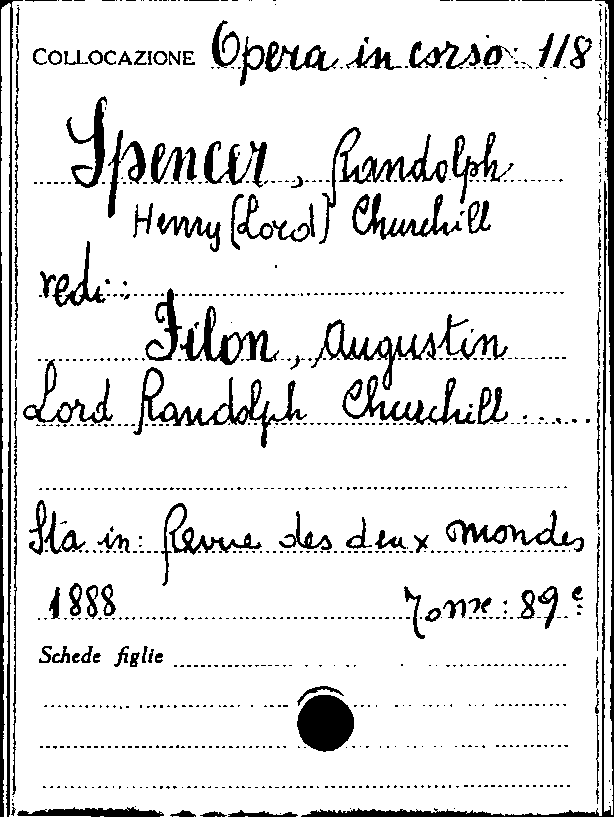 COLLOCAZIONE Opera in corso: 1/8
Spencer, Randolph
Henry (Lord) Churchill
vedi:
Filon, Augustin
Lord Randolph Churchill.....
Sta in: Revue des deux mondes
1888 Tome: 89e
Schede figlie